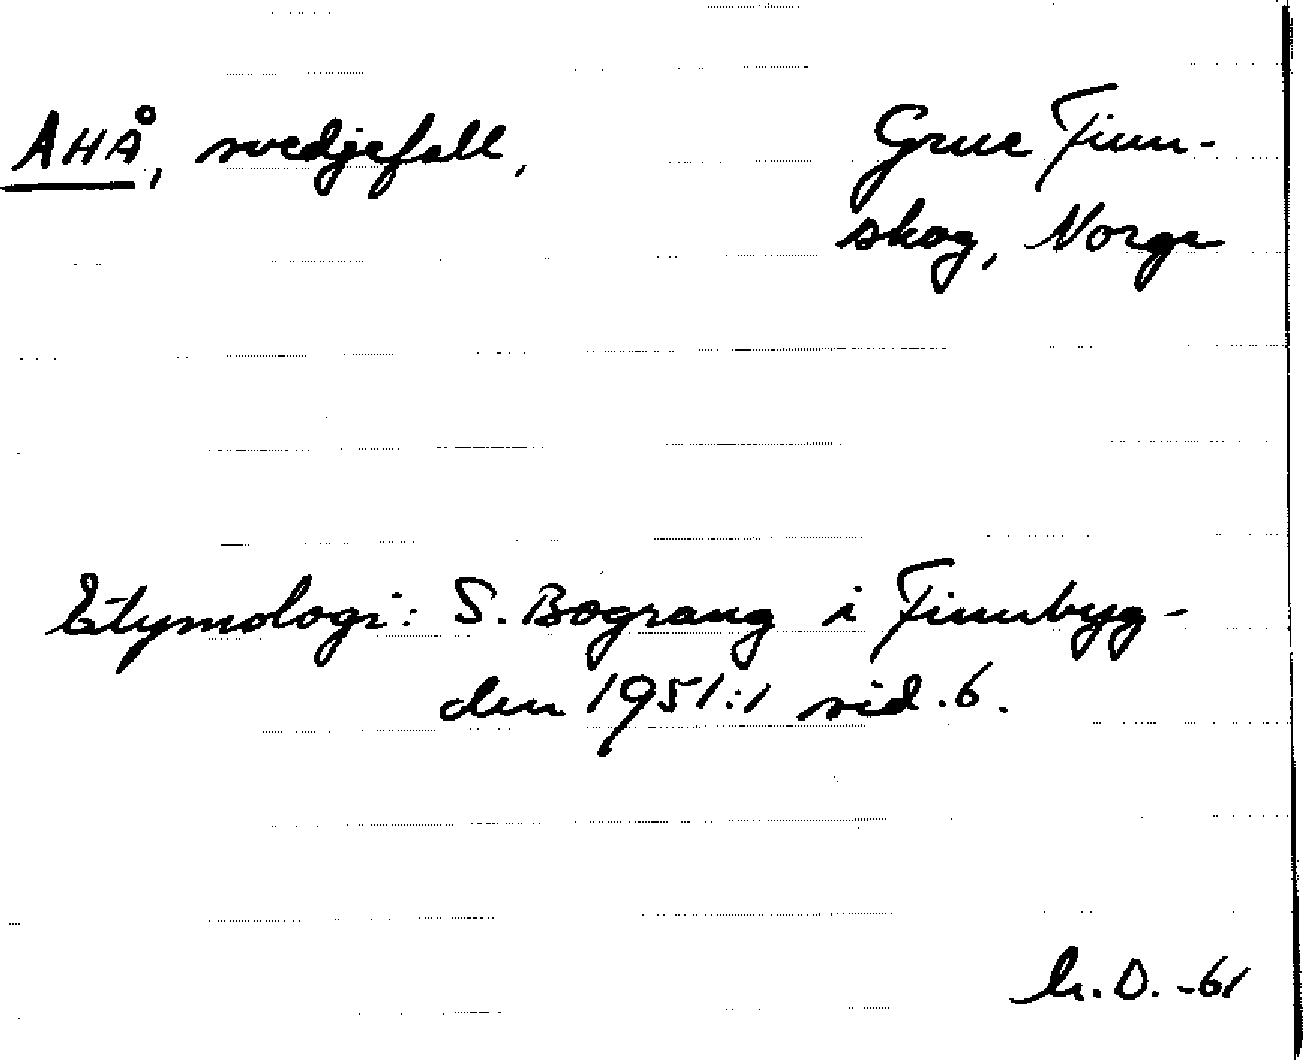 AHÅ, svedjefall, Grue Finn-
skog, Norge
Etymologi: S. Bograng i Finnbyg-
den 1951:1 sid. 6.
h. D. -61